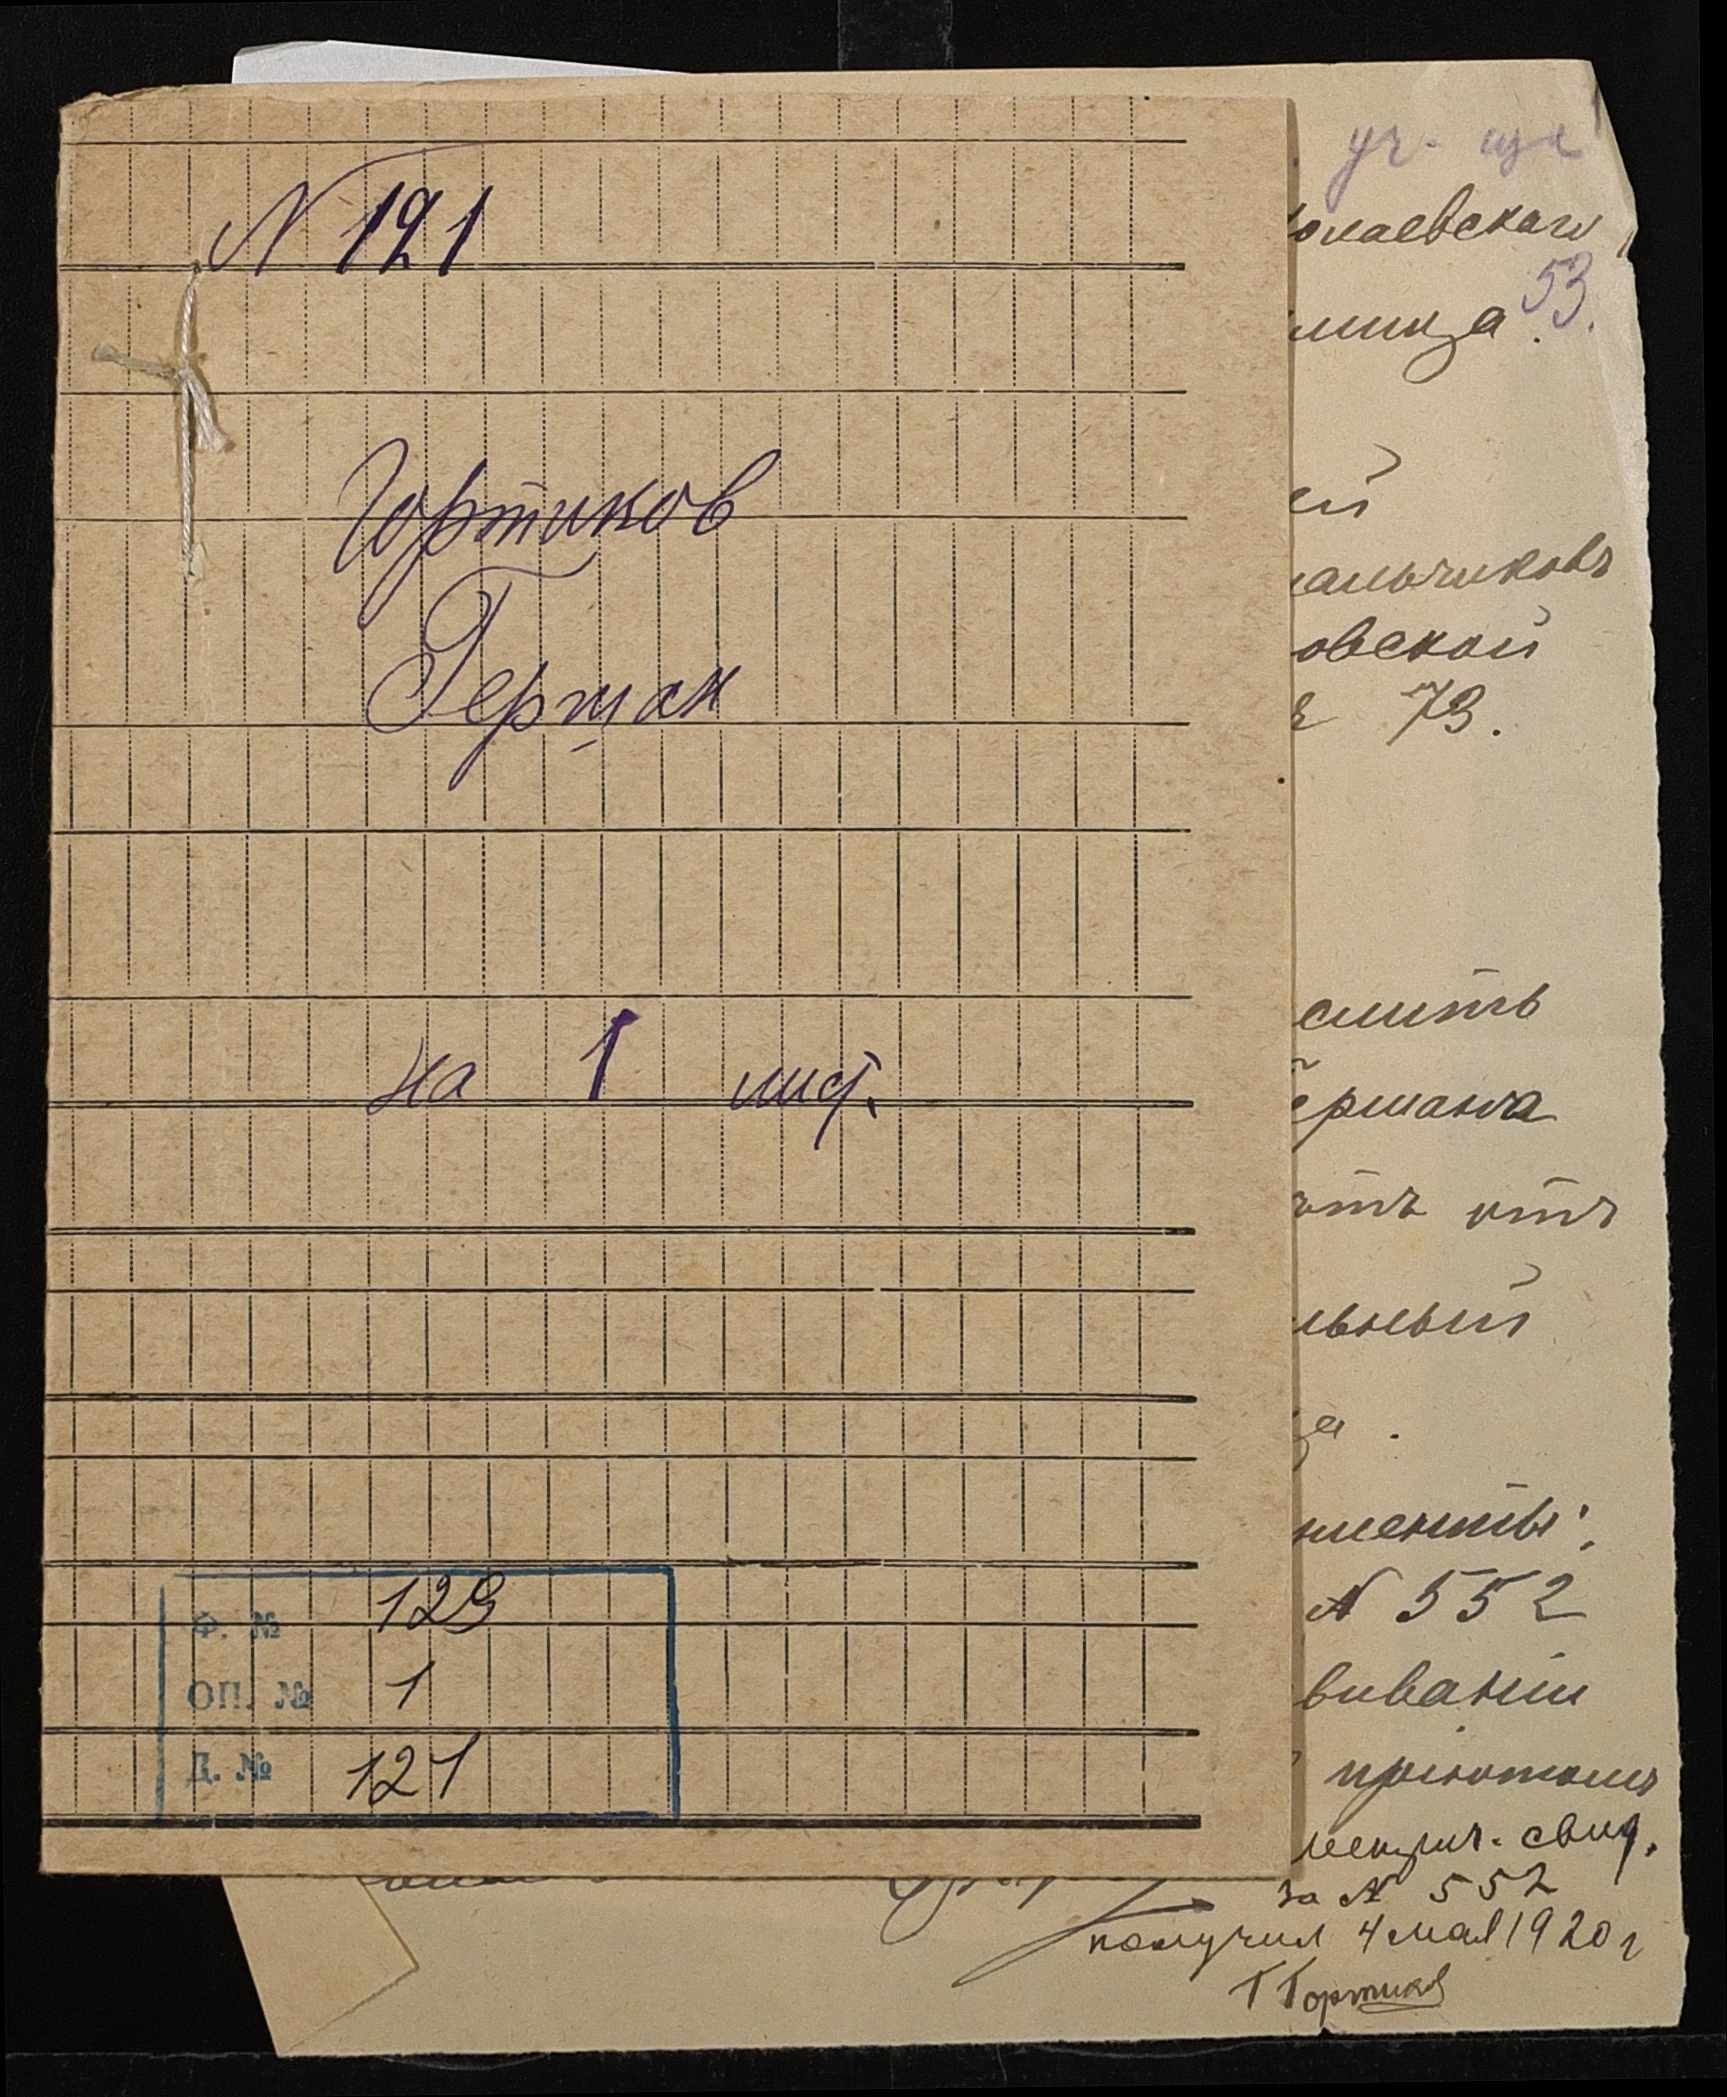 N 121
Гортиков
Герман
на 1 лис.
Ф. № 129
ОП. № 1
Д. № 121
уч-ща
колаевскаго
53.
лища
ей
мальчиковъ
овской
73.
слить
Германа
отъ
льный
ца.
менты:
N 552
вивании
приютомъ
метрич. свид.
за N 552
получил 4 мая 1920 г
Г Гортиков